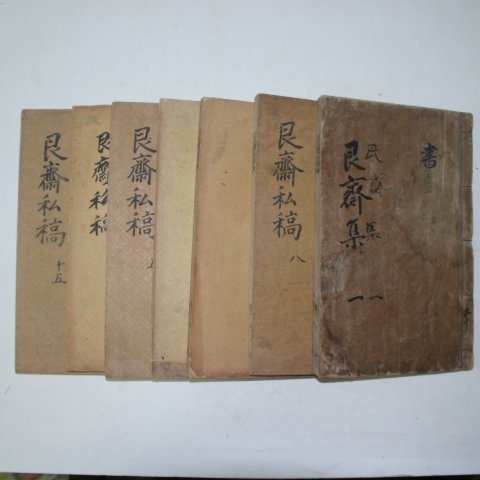 書
民齋集 一
艮齋集 一
艮齋私稿 八
艮齋私
艮齋私稿
艮齋私稿 十五